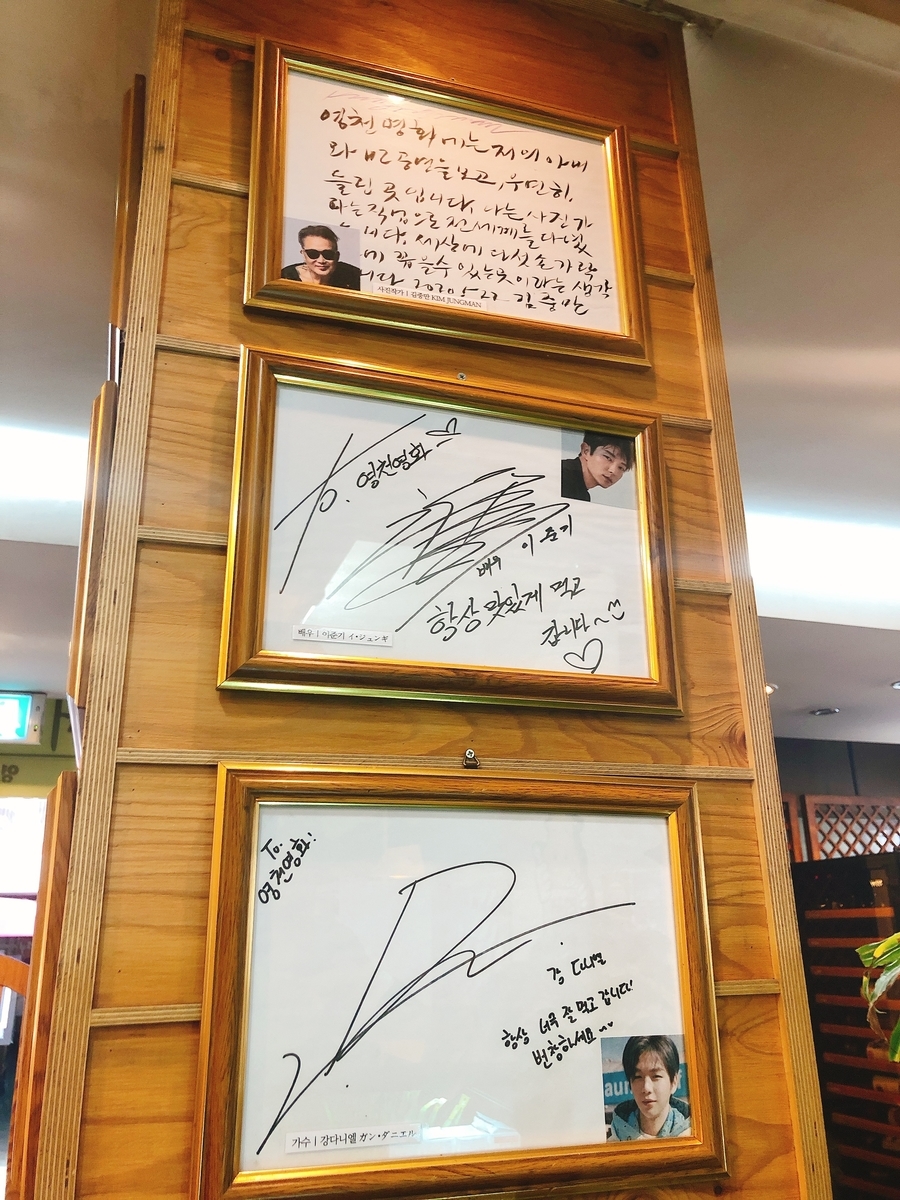 영천 영화 에는 저의 아버
보고, 우연히,
들린 곳 입니다. 나는 사진가
라는 직업으로 전세계를 다녔
니다. 세상에 다섯 손가락
에 꼽을수 있는곳이라는 생각
니다 2020 5. 22 김중만
사진작가 | 김중만 KIM JUNGMAN
to. 영천영화
배우 이준기
항상 맛있게 먹고
갑니다~
배우 | 이준기 イ・ジュンギ
To.
영천영화!
강 다니엘
항상 너무 잘 먹고 갑니다!
번창하세요
가수 | 강다니엘 カン・ダニエル